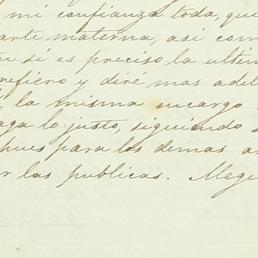 mi confianza toda, que
arte materna, asi com
si es preciso la ultim
refiero y diré mas adel
la misma encargo
aga lo justo, siguiendo
pues para los demas a
r las publicas. Mege